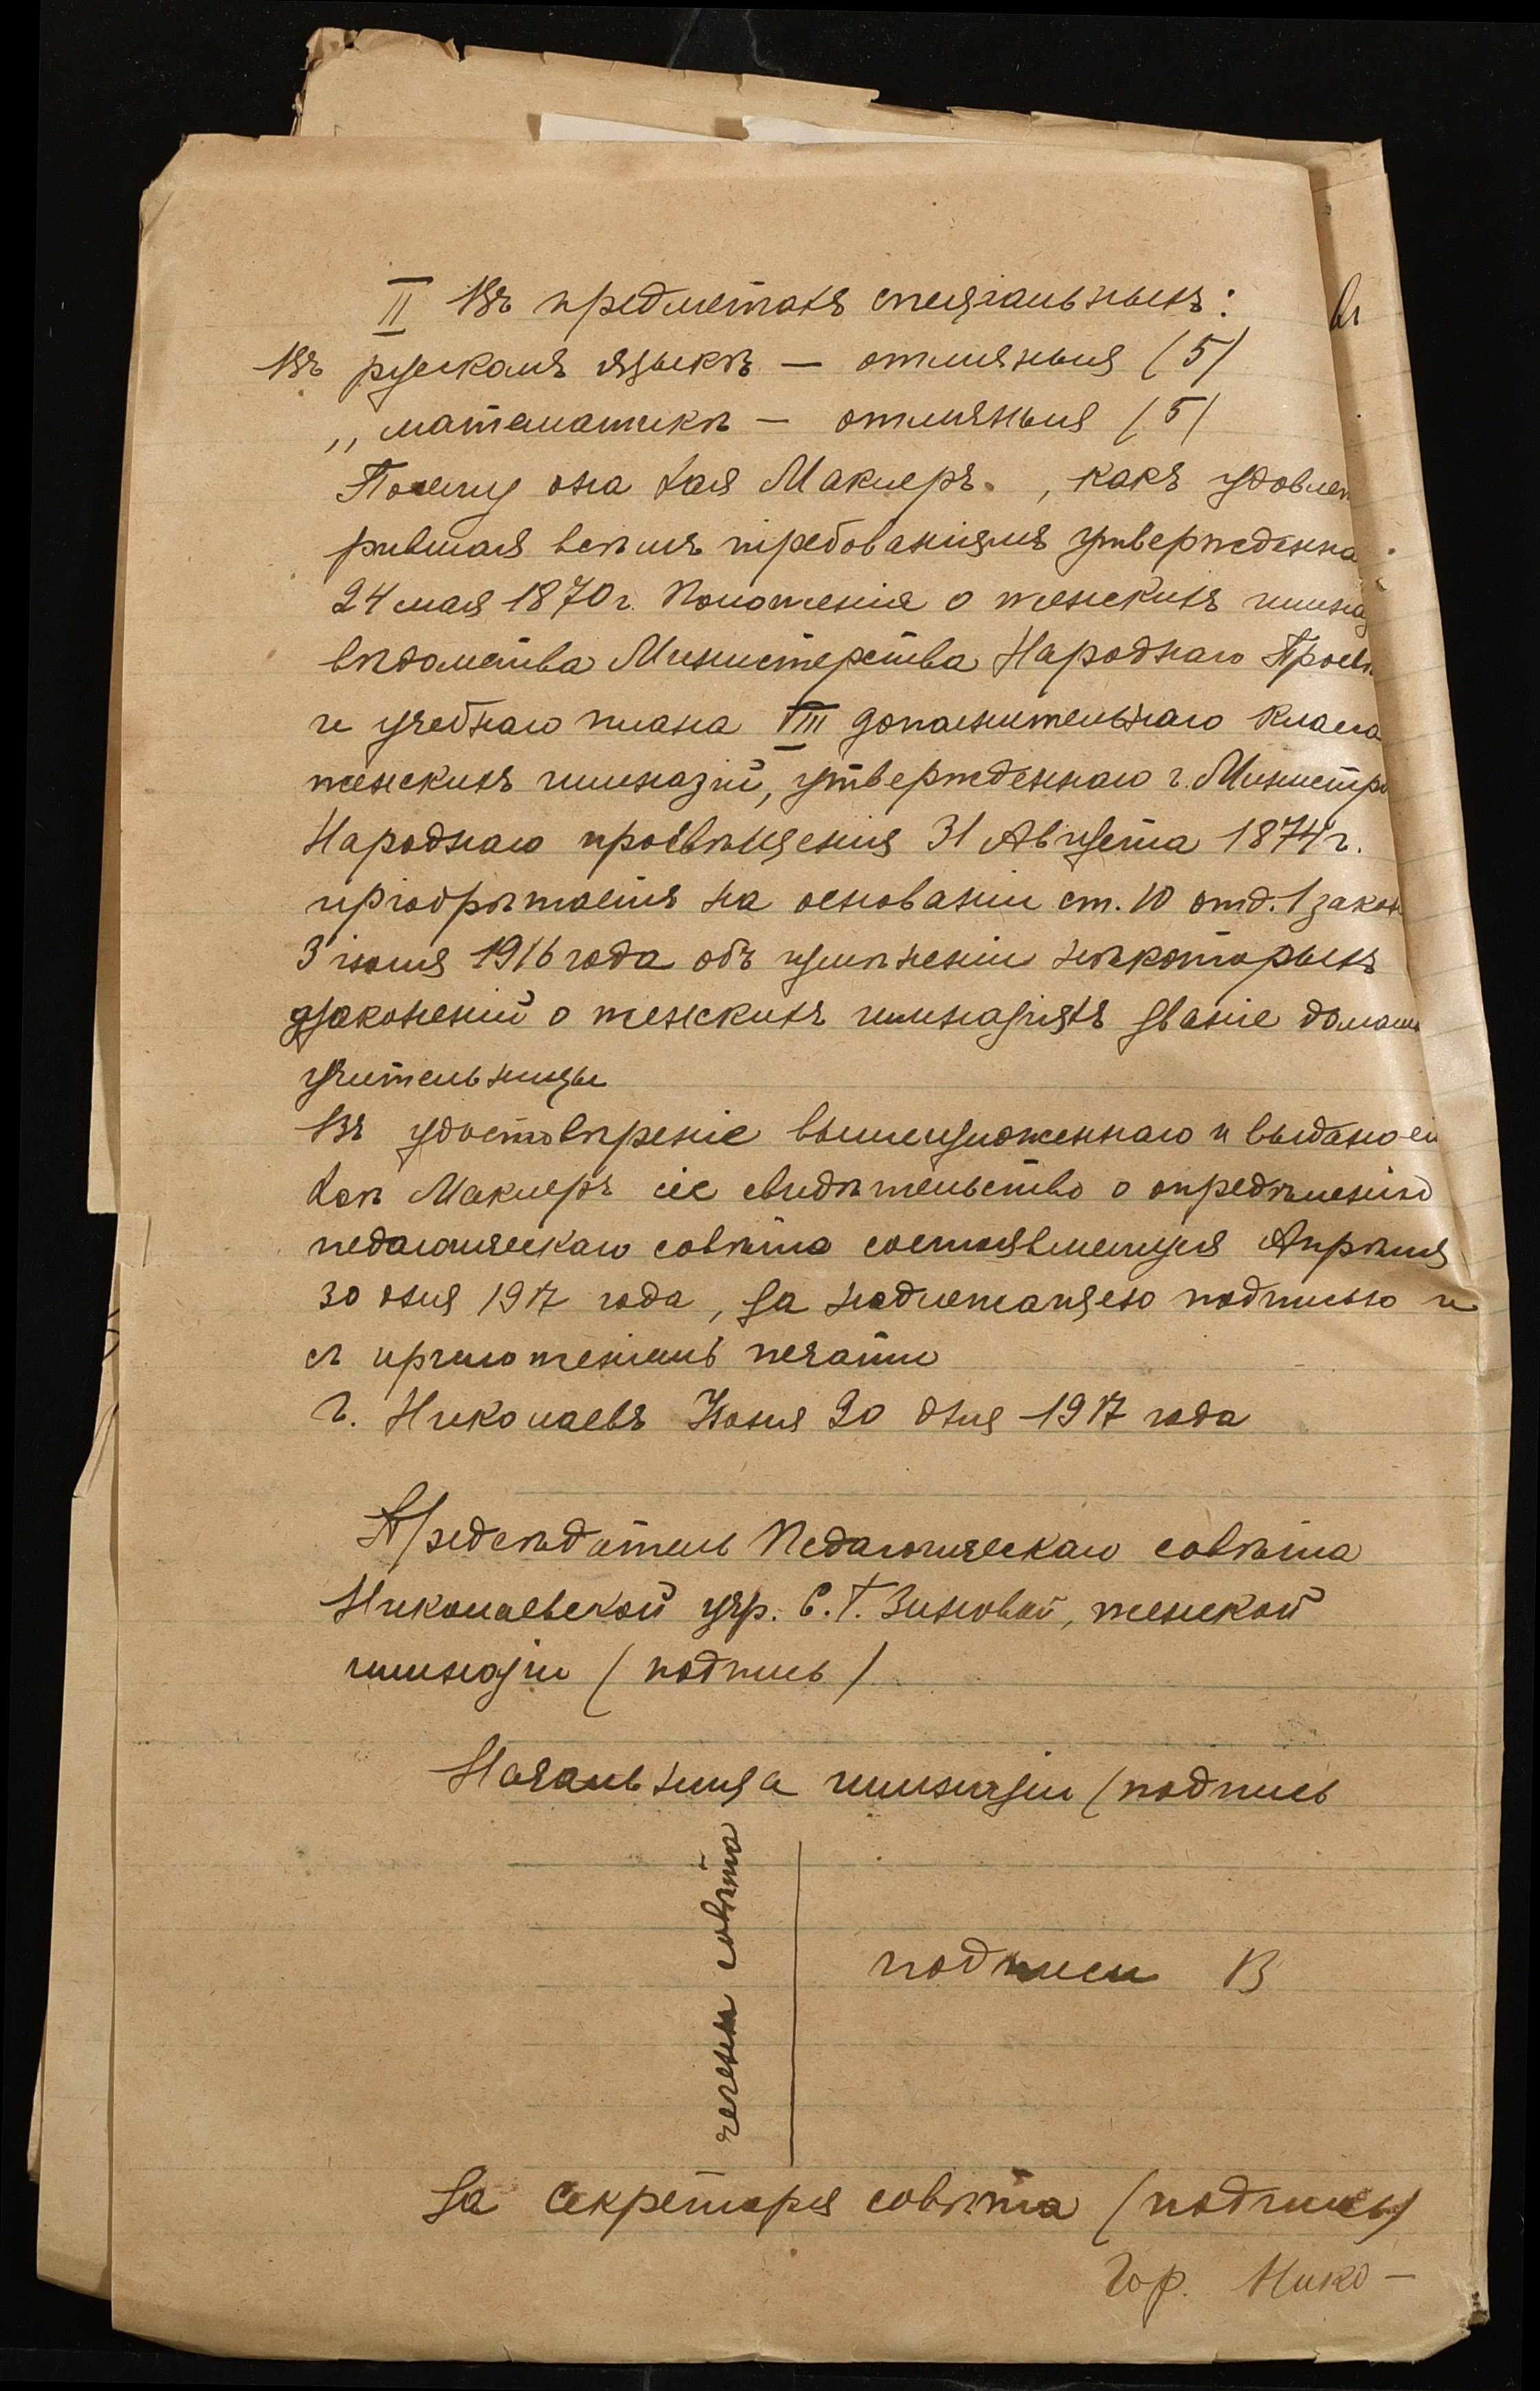 II Въ предметахъ спецiальныхъ:
Въ русскомъ языкѣ — отличныя (5)
„ математикѣ — отличныя (5)
Посему она Хая Маклеръ., какъ удовлет
рившая всѣмъ требованiямъ утвержденна
24 мая 1870 г. Положенiя о женскихъ гимназ
вѣдомства Министерства Народнаго Просвѣ
и учебнаго плана VIII дополнительнаго класса
женскихъ гимназiй, утвержденнаго г. Министро
Народнаго просвѣщенiя 31 Августа 1874 г.
прiобрѣтаетъ на основанiи ст. 10 отд. 1 закон
3 iюля 1916 года объ измѣненiи нѣкоторыхъ
узаконенiй о женскихъ гимназiяхъ званiе домашн
учительницы
Въ удостовѣренiе вышеизложеннаго и выдано ей
Хаѣ Маклеръ сiе свидѣтельство о опредѣленiю
педагогическаго совѣта состоявшемуся Апрѣля
30 дня 1917 года, за надлежащею подписью и
съ приложенiемъ печати
Г. Николаевъ Iюня 20 дня 1917 года
Предсѣдатель Педагогическаго совѣта
Николаевской учр. С. Т. Зиновой, женской
гимназiи (подпись)
Начальница гимназiи (подпись
члены совѣта
подписи В
За Секретаря совѣта (подпись)
Гор. Нико-